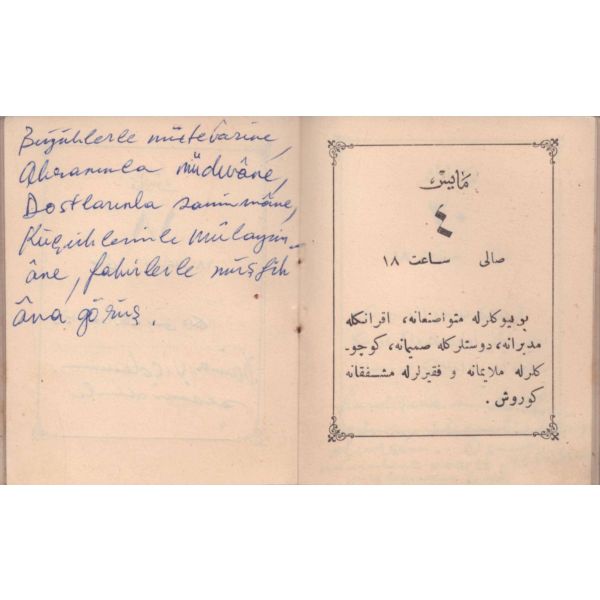 Büyüklerle mütevazine,
Akranınla müdirâne,
Dostlarınla samimâne,
Küçüklerinle mülayim-
âne, fakirlerle müşfik
âna görüş.
مایس
٤
صالی ساعت ١٨
بویوكلرله متواضعانه، اقرانكله
مدبرانه، دوستلركله صمیمانه، كوچو-
كلرله ملایمانه و فقیرلرله مشفقانه
كوروش .